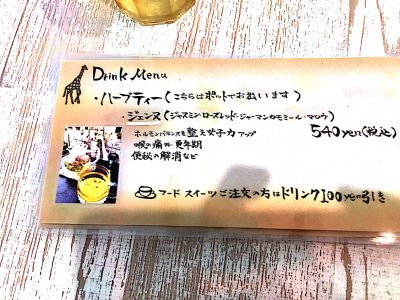 Drink Menu
・ハーブティー(こちらはポットでお出しします)
・ジェンヌ(ジャスミン・ローズレッド・ジャーマンカモミール・マロウ)
ホルモンバランスを整え女子力アップ 540yen(税込)
喉の痛み・更年期
便秘の解消など
フードスイーツご注文の方はドリンク100yen引き